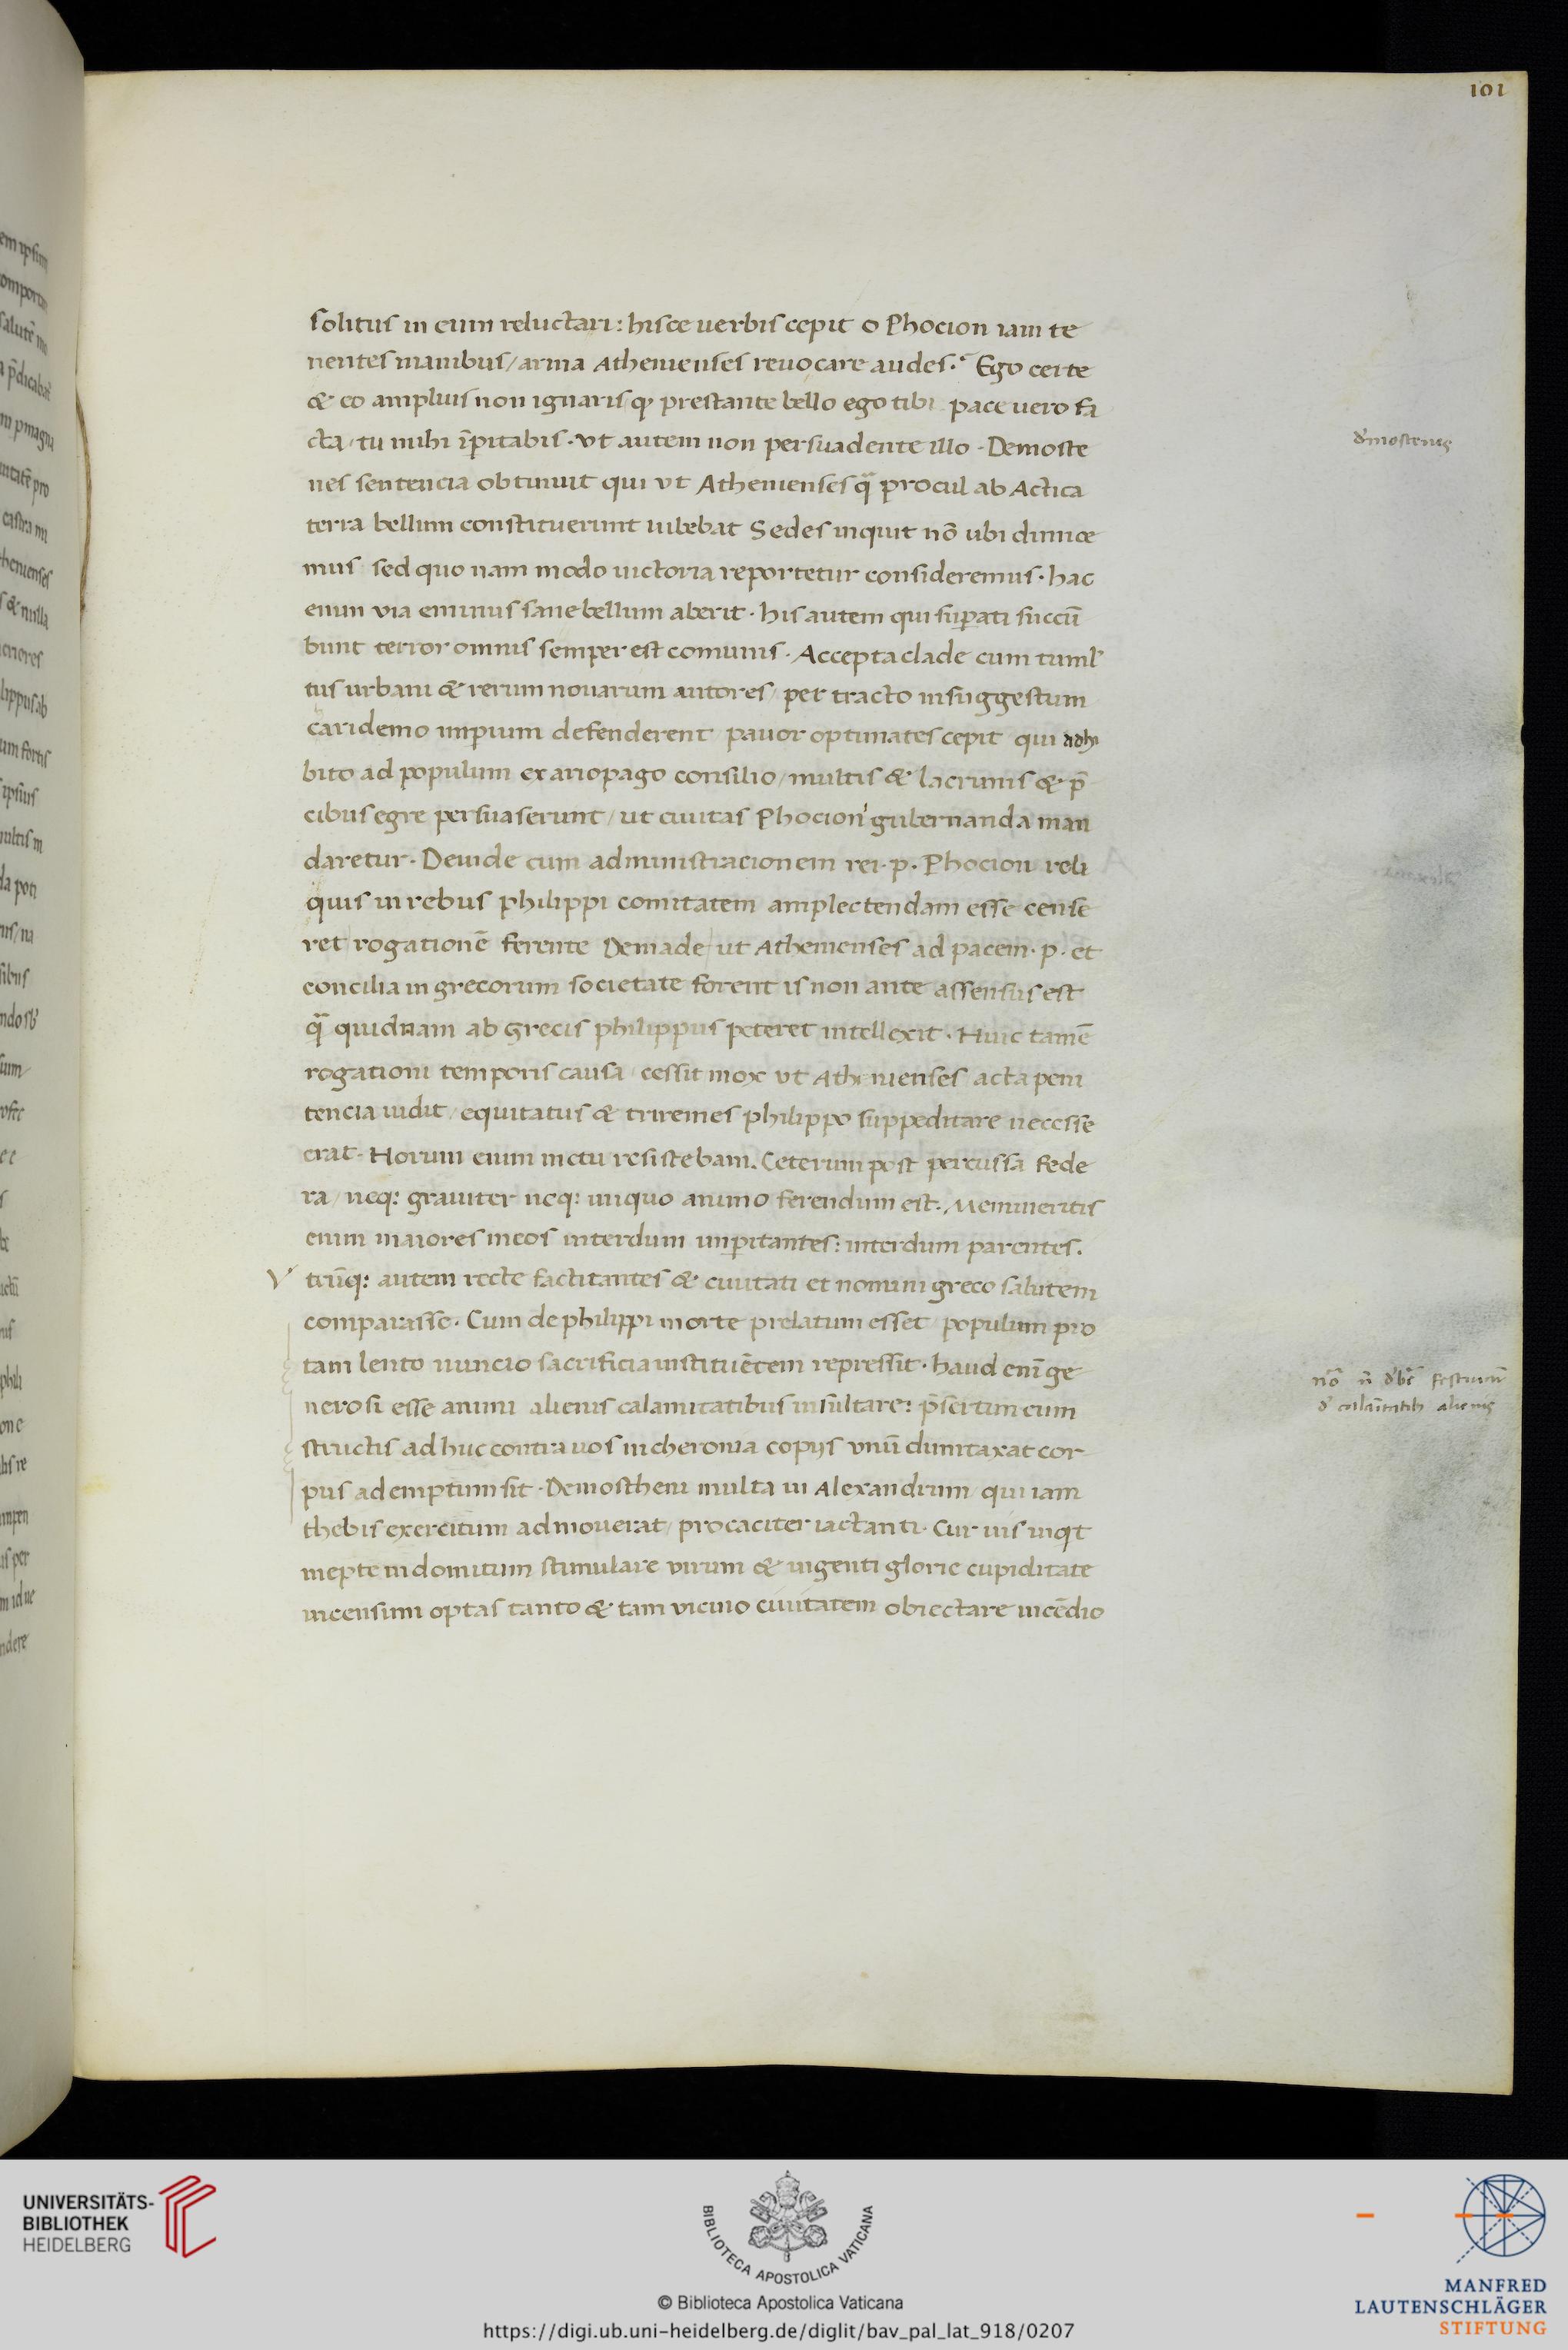 101
solitus in eum reluctari: hisce uerbis cepit o Phocion iam te
nentes manibus/ arma Athenienses reuocare audes.? Ego certe
& eo amplius non ignaris q prestante bello ego tibi pace uero fa
cta/ tu mihi īpitabis. vt autem non persuadente illo. Demoste
nes sentencia obtinuit qui vt Athenienses q̃ procul ab Actica
terra bellum constituerunt iubebat Sedes inquit nō ubi dimice
mus sed quo nam modo uictoria reportetur consideremus. hac
enim via eminus sane bellum aberit. his autem qui supati succū
bunt terror omnis semper est comunis. Accepta clade cum tuml'
tus urbani & rerum nouarum autores/ per tracto in suggestum
caridemo impium defenderent pauor optimates cepit qui adhi
bito ad populum ex ariopago consilio/ multis & lacrimis & p̄
cibus egre persuaserunt/ ut ciuitas Phocioni gubernanda man
daretur. Deinde cum administracionem rei. p. Phocion reli
quis in rebus philippi comitatem amplectendam esse cense
ret rogationē ferente Demade/ ut Athenienses ad pacem. p. et
concilia in grecorum societate forent is non ante assensus est
q̃ quidnam ab Grecis philippus peteret intellexit. Huic tamē
rogationi temporis causa/ cessit mox vt Athenienses acta peni
tencia uidit/ equitatus & triremes philippo suppeditare necesse
erat. Horum enim metu resistebam. Ceterum post percussa fede
ra/ neq: grauiter neq: iniquo animo ferendum est. Memineritis
enim maiores meos interdum impitantes: interdum parentes.
V trūq: autem recte factitantes & ciuitati et nomini greco salutem
comparasse. Cum de philippi morte prelatum esset populum pro
tam lento nuncio sacrificia instituētem repressit. haud enī ge
nerosi esse animi alienis calamitatibus insultare: p̄sertim cum
structis ad huc contra uos in cheronia copijs vnū dumtaxat cor-
pus ademptum sit. Demostheni multa in Alexandrum/ qui iam
thebis exercitum admouerat/ procaciter iactanti. Cur uis inqt
inepte indomitum stimulare virum & ingenti glorie cupiditate
incensum optas tanto & tam vicino ciuitatem obiectare incēdio
d'mostenis
UNIVERSITÄTS-
BIBLIOTHEK
HEIDELBERG
BIBLIOTECA APOSTOLICA VATICANA
© Biblioteca Apostolica Vaticana
https://digi.ub.uni-heidelberg.de/diglit/bav_pal_lat_918/0207
MANFRED
LAUTENSCHLÄGER
STIFTUNG